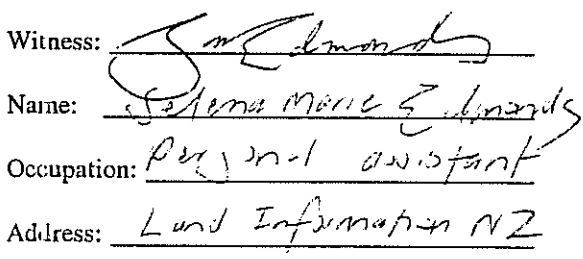 Witness: SM Edmonds
Name: Selena Marie Edmonds
Occupation: Personal assistant
Address: Land Information NZ